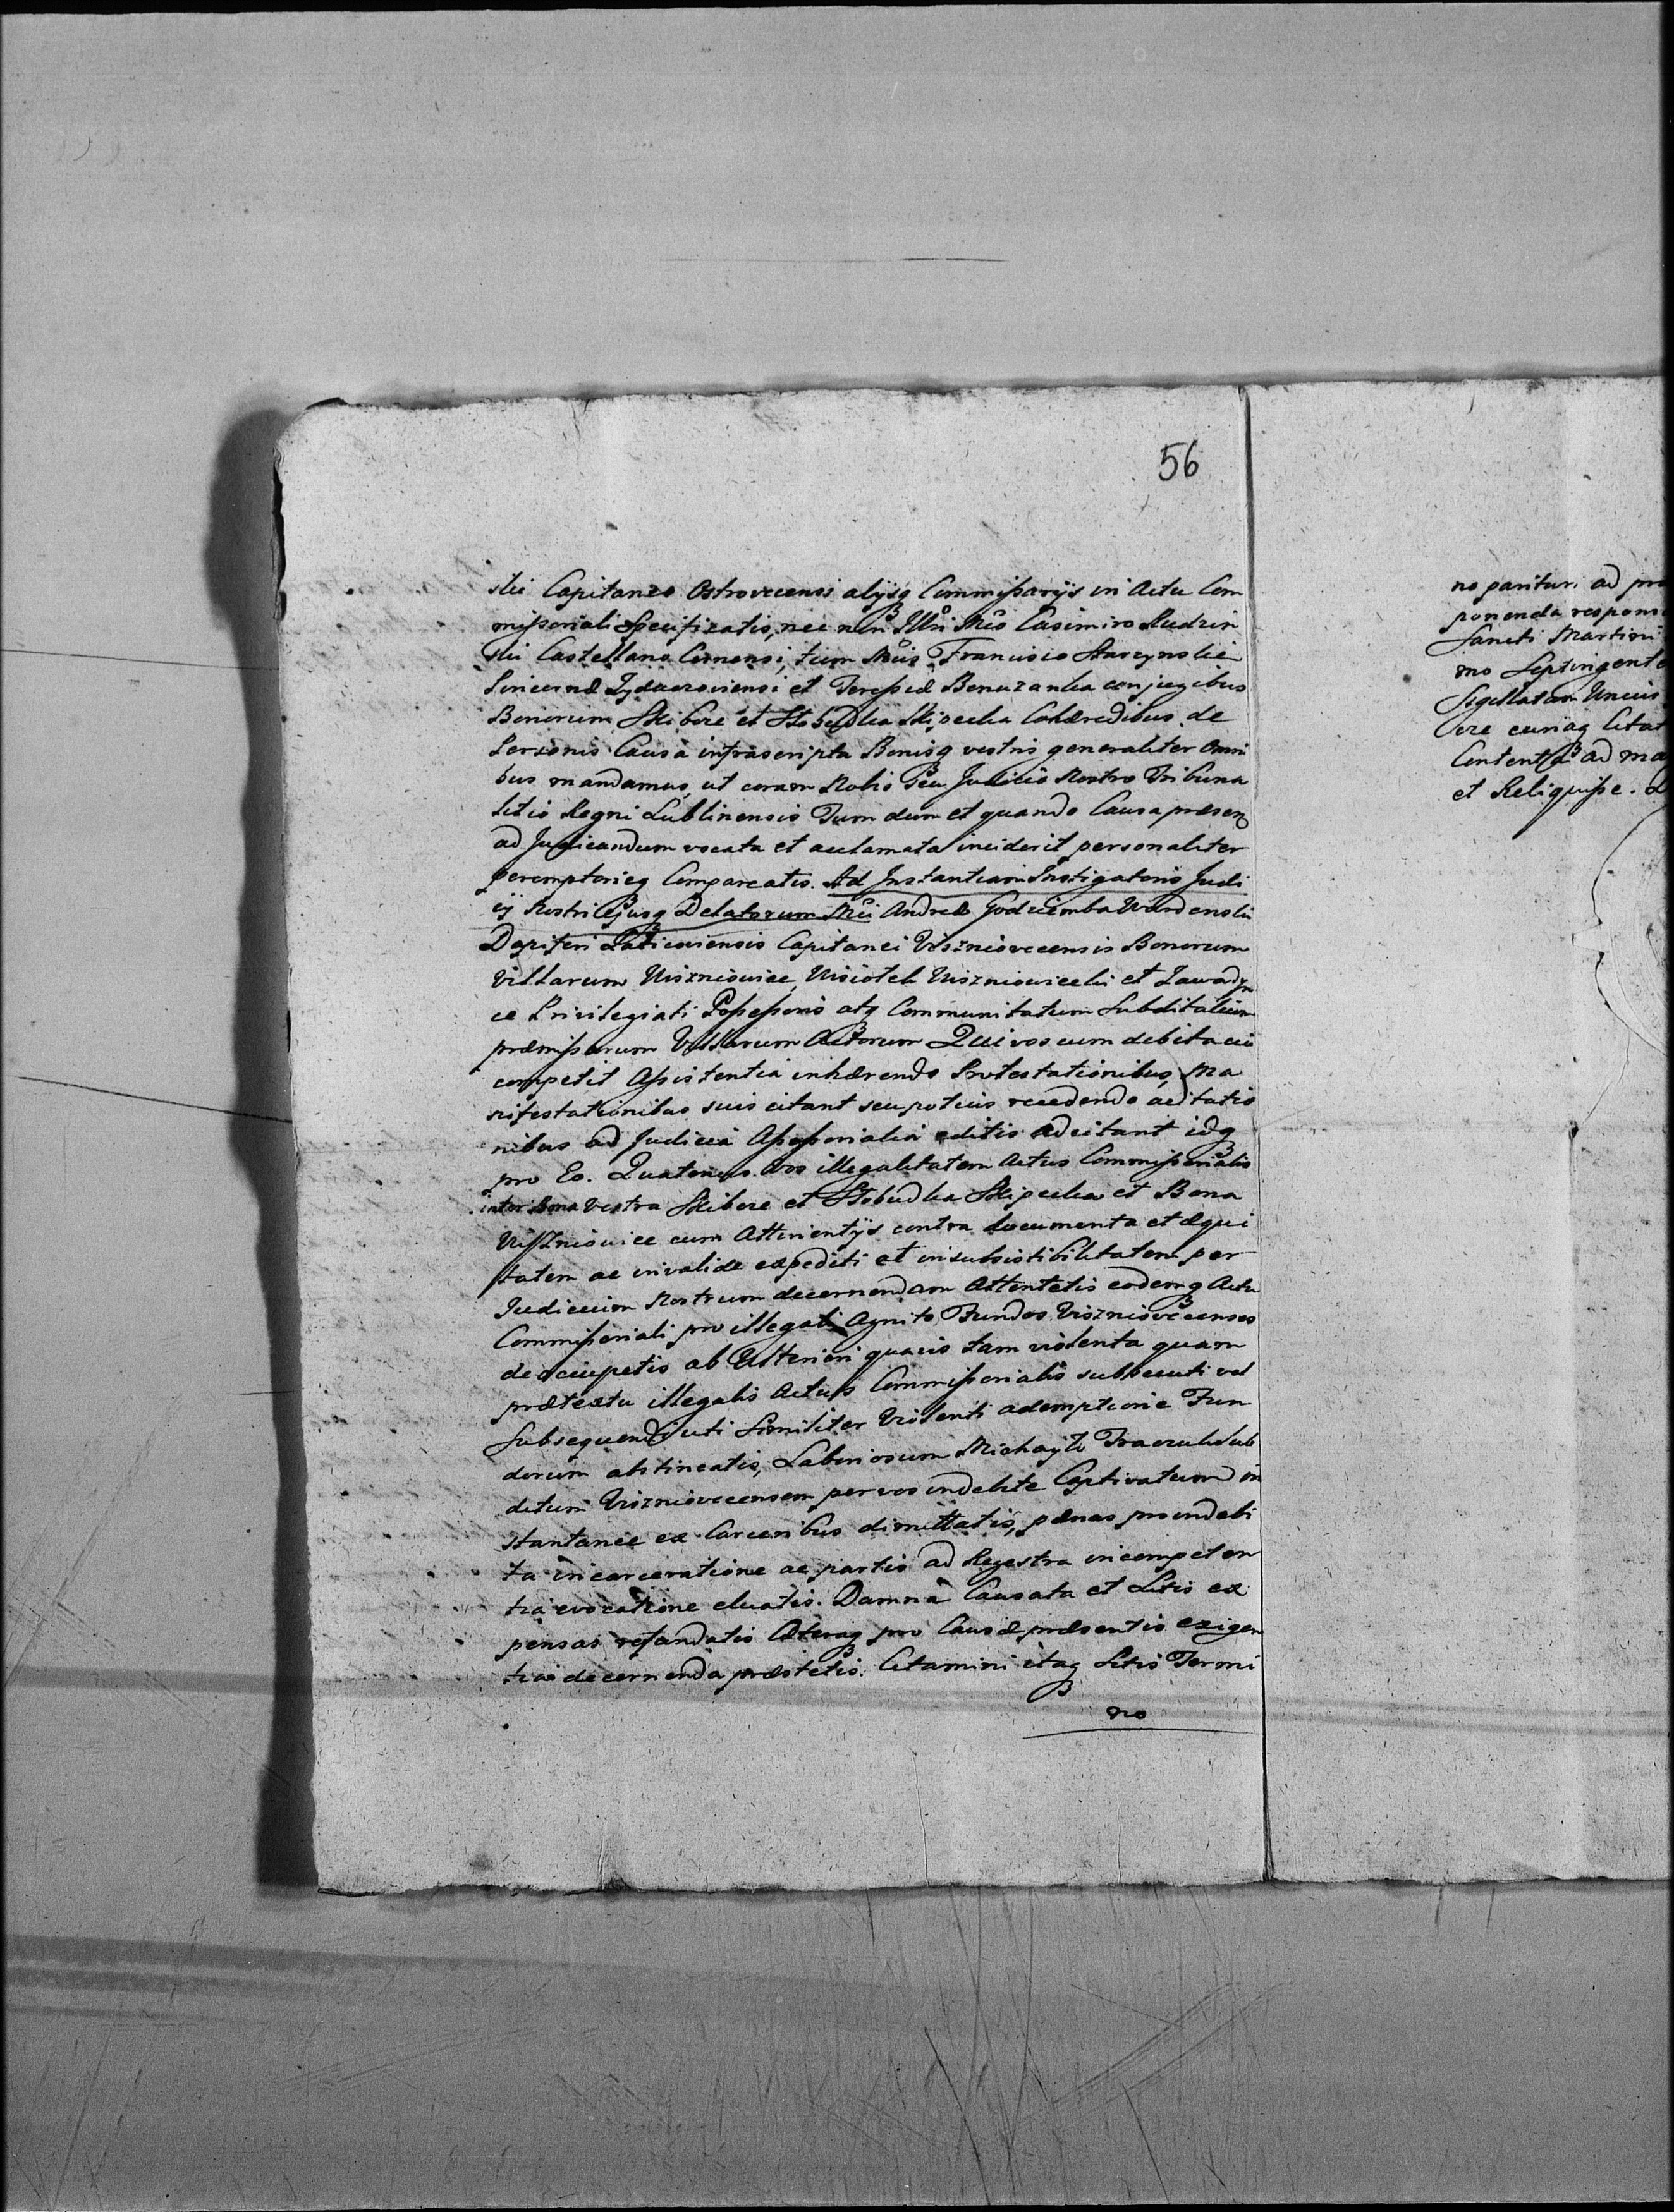 56
ski Capitaneo Ostrovecensi alijsq Commissarijs in Actu Com
missoriali Specificatis, nec non Illri Mco Casimiro Rudzin
ski Castellano Cernensi, tum Mcis Francisco Starzynskie
Pincernæ Zydaczoviensi et Teressiæ Bonuzanka conjugibus
Bonorum Skibore et Slobudka Skipecka Cohæredibus de
Personis Causa infrascripta Bonisq vestris generaliter omni
bus mandamus, ut coram Nobis seu Judicio Nostro Tribuna
litio Regni Lublinensis Tum dum et quando Causa præsens
ad Judicandum vocata et acclamata inciderit personaliter
peremptorieq Compareatis. Ad Instantiam Instigatoris Judi
cij Nostri Ejusq Delatorum Mci Andreæ Godziemba
Dapiferi Capitanei Viszniovecensis Bonorum
Villarum Viszniowice, Wisiolek Viszniowiecki et Zawadyn
ce Privilegiati Possessoris atq Communitatum Subditalium
præmissarum Villarum Actorum Qui vos cum debita cui
competit Assistentia inhærendo Protestationibus, Ma
nifestationibus suis citant seu potius recedendo a citatio
nibus ad Judicia Assessorialia editis adcitant idq
pro Eo. Quatenus Vos illegalitatem Actus Commissorialis
inter Bona Vestra Skibore et Slobudka Skipecka et Bona
Viszniowice cum Attinentijs contra documenta et æqui
tatem ac invalide expediti et insubsistibilitatem per
Judicium Nostrum decernendam Attentetis eodemq Actu
Commissoriali pro illegali Agnito Fundos Viszniovecenses
deoccupetis ab Ulteriori quavis tam violenta quam
prætextu illegalis Actus Commissorialis subsecuti vel
Subsequendi uti Similiter Violenti ademptione Fun
dorum abstineatis, Laboriosum Michayło Sub
ditum Viszniovecensem per vos indebite Captivatum in
stantanee ex Carceribus dimittatis, pænas pro indebi
ta incarceratione ac partis ad Regestra incompeten
tia evocatione eluatis. Damna Causata et Litis ex
pensas refundatis Cæteraq pro Causæ præsentis exigen
tia decernenda præstetis. Citamini itaq Litis Termi
no
no parituri ad pro
ponenda respons
Sancti Martini
mo Septingente
Sigillatam
ore cuiusq Citat
Contentæ ad ma
et Reliquisse.